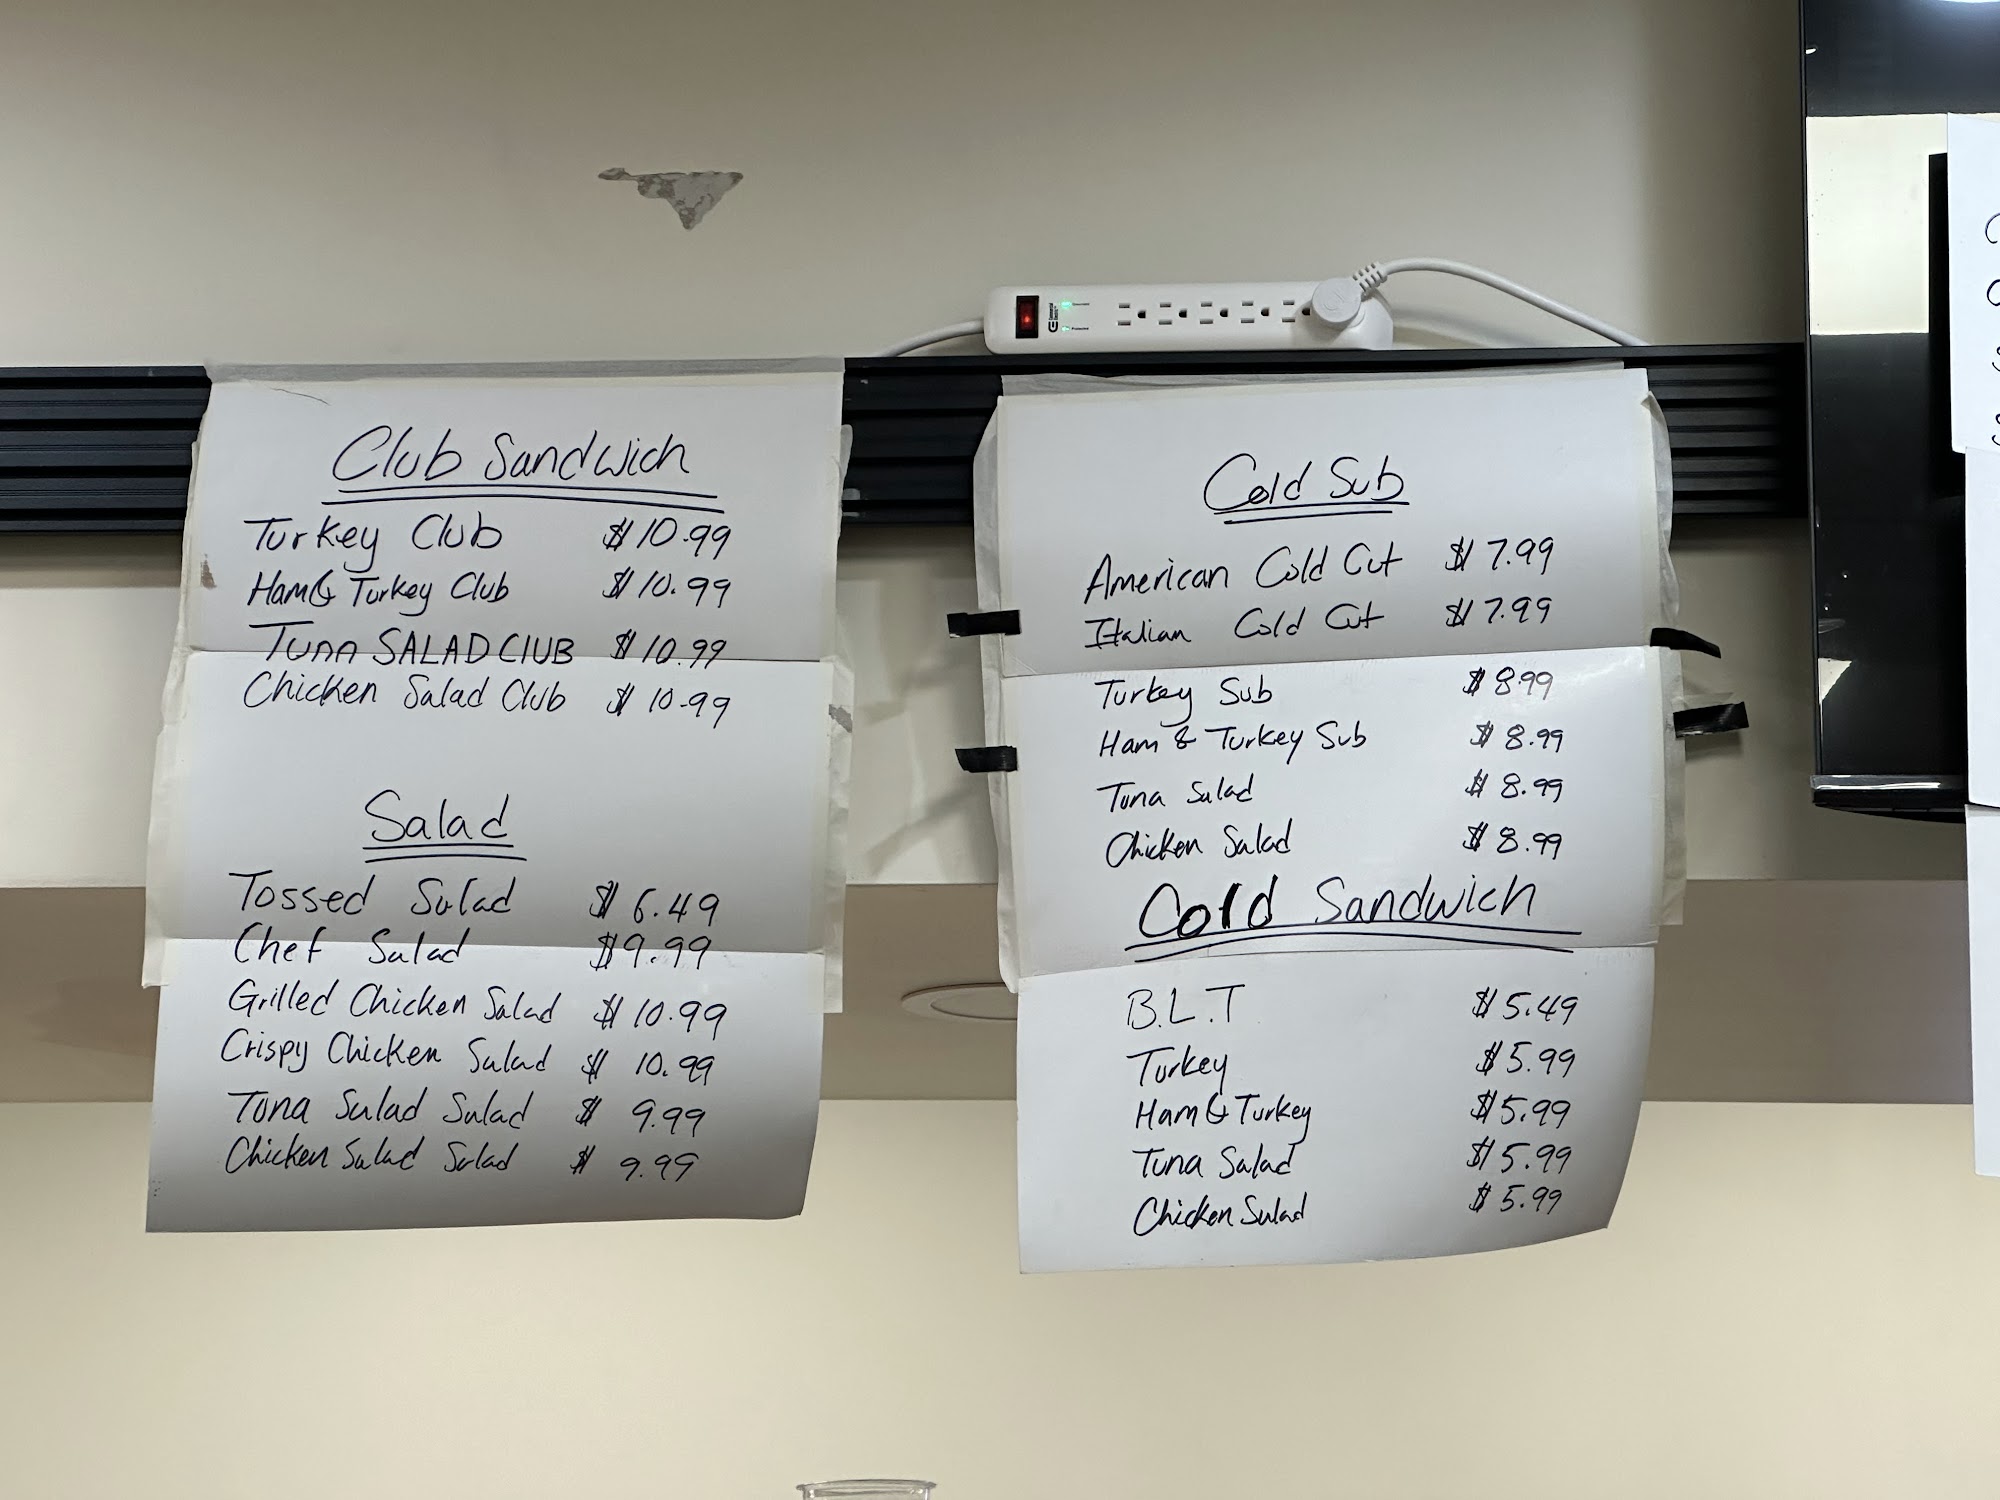 Club Sandwich
Turkey Club $10.99
Ham & Turkey Club $10.99
Tuna SALAD CLUB $10.99
Chicken Salad Club $10.99
Salad
Tossed Salad $6.49
Chef Salad $9.99
Grilled Chicken Salad $10.99
Crispy Chicken Salad $10.99
Tuna Salad Salad $9.99
Chicken Salad Salad $9.99
Cold Sub
American Cold Cut $7.99
Italian Cold Cut $7.99
Turkey Sub $8.99
Ham & Turkey Sub $8.99
Tuna Salad $8.99
Chicken Salad $8.99
Cold Sandwich
B.L.T $5.49
Turkey $5.99
Ham & Turkey $5.99
Tuna Salad $5.99
Chicken Salad $5.99